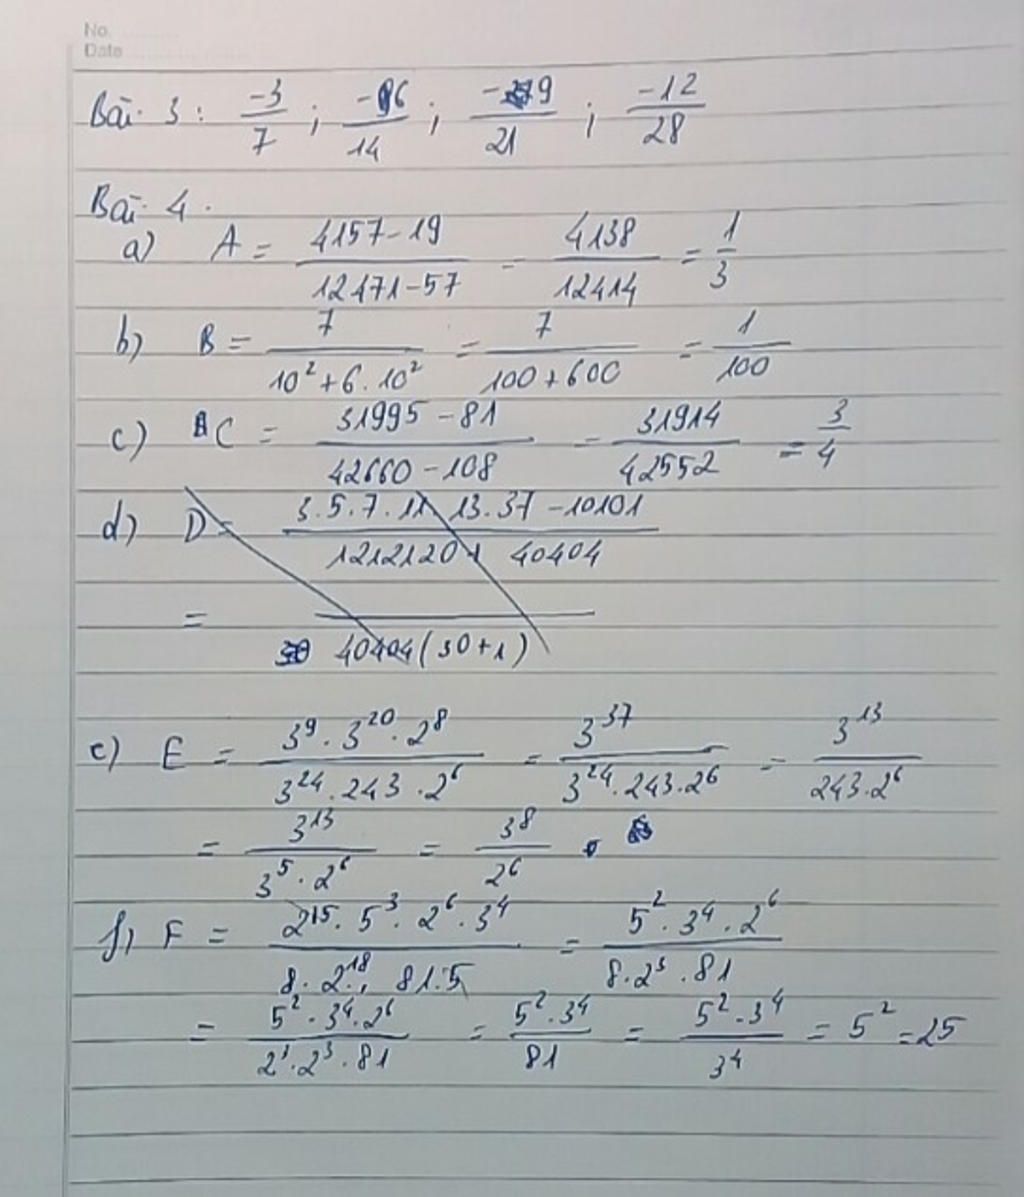 No.
Date
Bài 3: -3/7 ; -6/14 ; -9/21 ; -12/28
Bài 4.
a) A = (4157-19)/(12471-57) = 4138/12414 = 1/3
b) B = 7/(10²+6.10²) = 7/(100+600) = 1/100
c) C = (31995-81)/(42660-108) = 31914/42552 = 3/4
d) D = (3.5.7.11.13.37-10101)/(1212120+40404)
= /40404(30+1)
e) E = (3⁹.3²⁰.2⁸)/(3²⁴.243.2⁶) = 3³⁷/(3²⁴.243.2⁶) = 3¹³/(243.2⁶)
= 3¹³/(3⁵.2⁶) = 3⁸/2⁶
f) F = (2¹⁵.5³.2⁶.3⁴)/(8.2¹⁸.81.5) = (5².3⁴.2⁶)/(8.2³.81)
= (5².3⁴.2⁶)/(2³.2³.81) = (5².3⁴)/81 = (5².3⁴)/3⁴ = 5² = 25